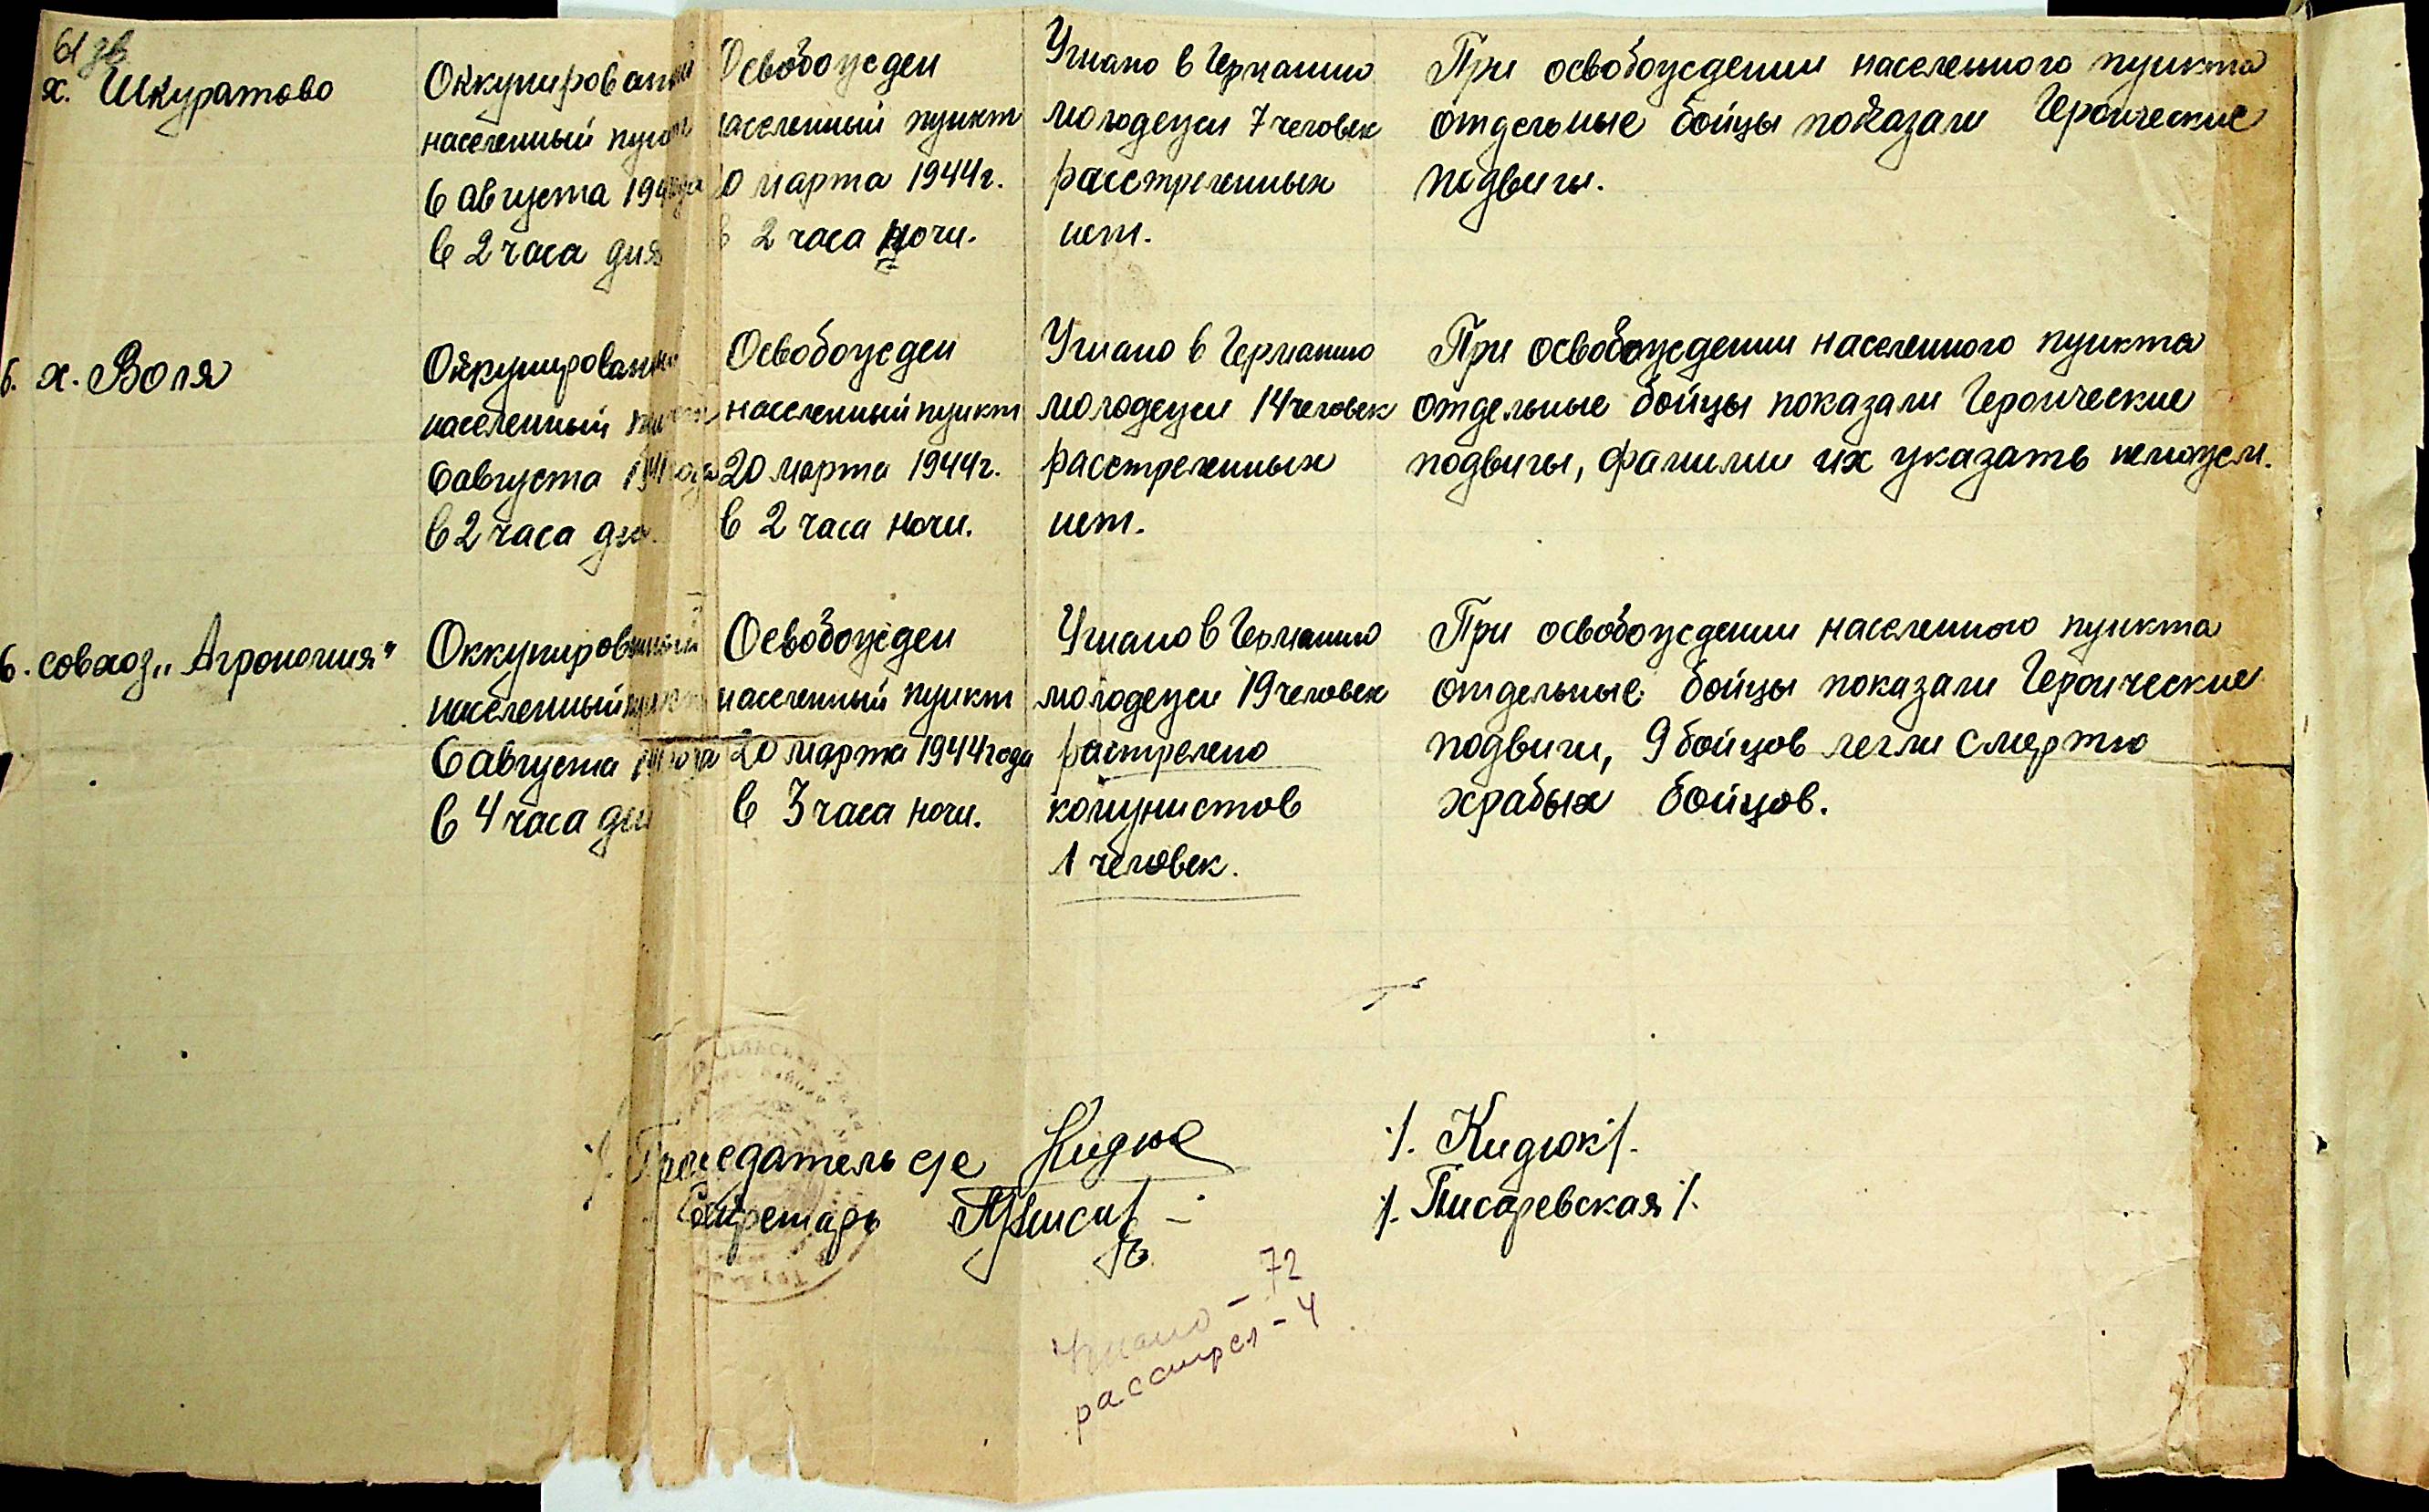 61 зв
х. Шкуратово
Оккупированный
населенный пункт
6 августа 1941 года
в 2 часа дня
Освобожден
населенный пункт
20 марта 1944г.
в 2 часа ночи.
Угнано в Германию
молодежи 7 человек
расстреленных
нет.
При освобождении населенного пункта
отдельные бойцы показали Героические
подвигы.
б. х. Воля
Оккупированный
населенный пункт
6 августа 1941 года
в 2 часа дня.
Освобожден
населенный пункт
20 марта 1944г.
в 2 часа ночи.
Угнано в Германию
молодежи 14 человек
расстреленных
нет.
При освобождении населенного пункта
отдельные бойцы показали Героические
подвигы, фамилии их указать неможем.
6. совхоз „Агрономия"
Оккупированный
населенный пункт
6 августа 1941 года
в 4 часа дня
Освобожден
населенный пункт
20 марта 1944 года
в 3 часа ночи.
Угнано в Германию
молодежи 19 человек
растрелено
комунистов
1 человек.
При освобождении населенного пункта
отдельные бойцы показали Героические
подвиги, 9 бойцов легли смертю
храбых бойцов.
Председатель с/с Кидюк /. Кидюк /.
Секретарь /. Писаревская /.
Угнано - 72
расстрел - 4